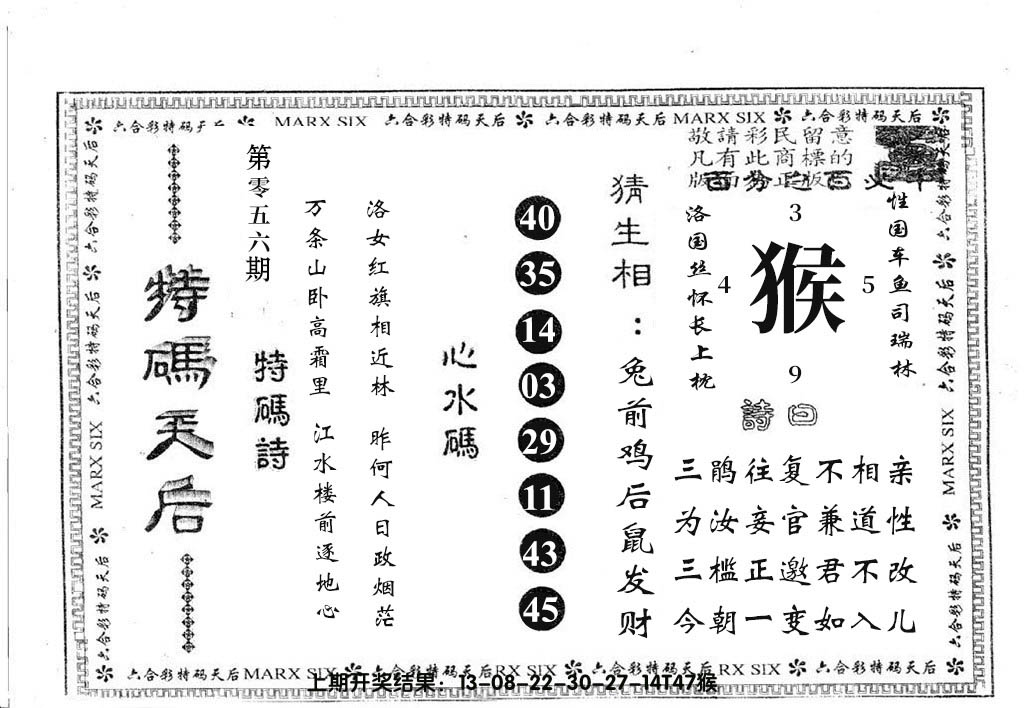 六合彩特码天后 MARX SIX 六合彩特码天后 六合彩特码天后 MARX SIX 六合彩特码天后
敬請彩民留意
凡有此商標的
特碼天后
第零五六期
特碼詩
万条山卧高霜里 江水楼前逐地心
洛女红旗相近林 昨何人日政烟茫
心水碼
40
35
14
03
29
11
43
45
猜生相：兔前鸡后鼠发财
洛国丝怀长上枕
3
4 猴 5
9
性国车鱼司瑞林
詩曰
三鹃往复不相亲
为汝妾官兼道性
三槛正邀君不改
今朝一变如入儿
六合彩特码天后 MARX SIX 六合彩特码天后
六合彩特码天后 MARX SIX 六合彩特码天后
六合彩特码天后 MARX SIX 六合彩特码天后 RX SIX 六合彩特码天后 RX SIX 六合彩特码天后
上期开奖结果：13-08-22-30-27-14T47猴